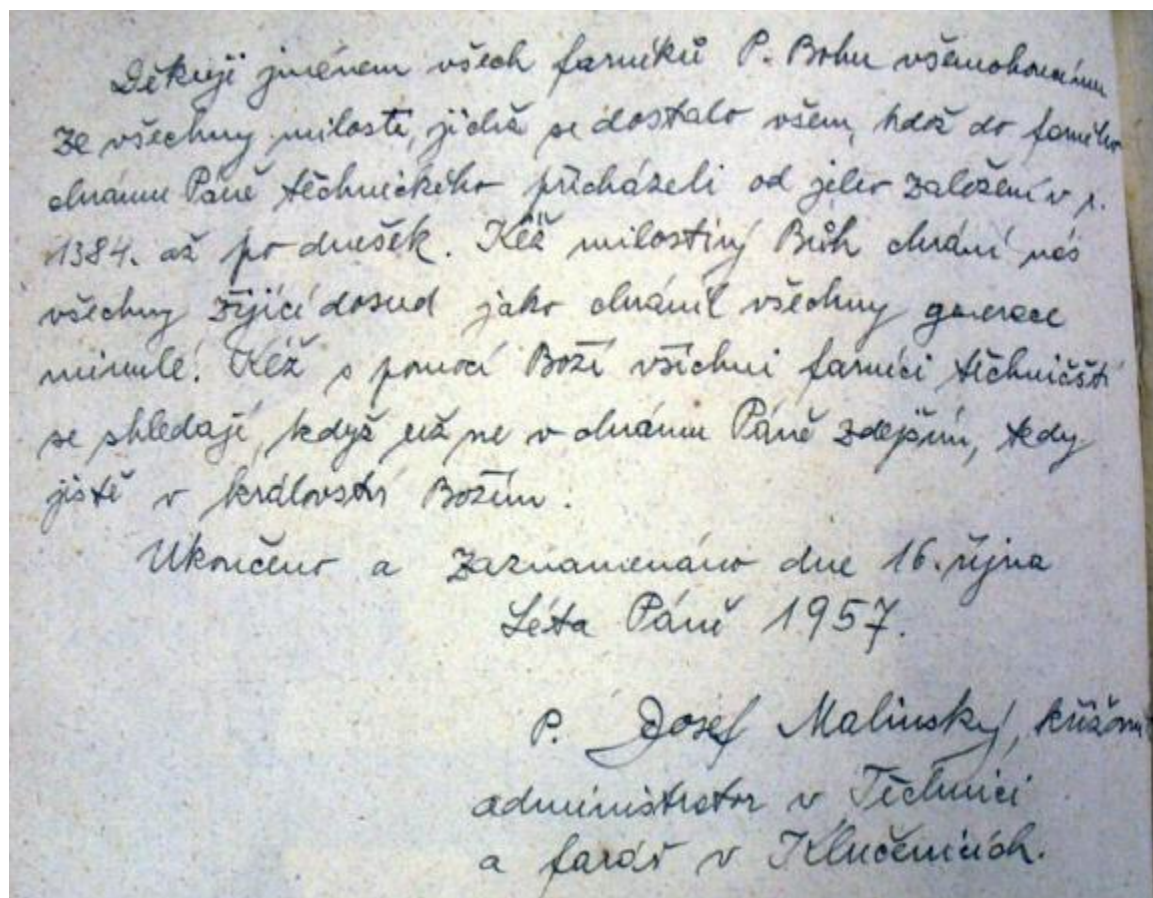 Děkuji jménem všech farníků P. Bohu všemohoucímu
ze všechny milosti, jichž se dostalo všem, kdož do farního
chrámu Páně těchnického přicházeli od jeho založení v r.
1384. až po dnešek. Kéž milostivý Bůh chrání nás
všechny žijící dosud jako chránil všechny generace
minulé! Kéž s pomocí Boží všichni farníci těchničští
se shledají, když už ne v chrámu Páně zdejším, tedy
jistě v království Božím.
Ukončeno a zaznamenáno dne 16. října
Léta Páně 1957.
P. Josef Malinský,
administrator v Těchnici
a farář v Klučenicích.